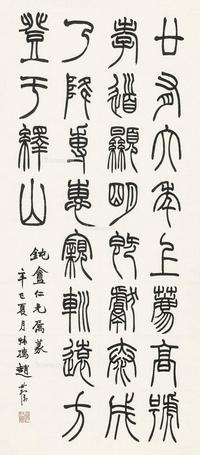 廿有六年上薦高號
孝道顯明既獻泰成
乃降專惠寴巡遠方
登于繹山
鈍盫仁兄屬篆
辛巳夏月叔孺趙時棡